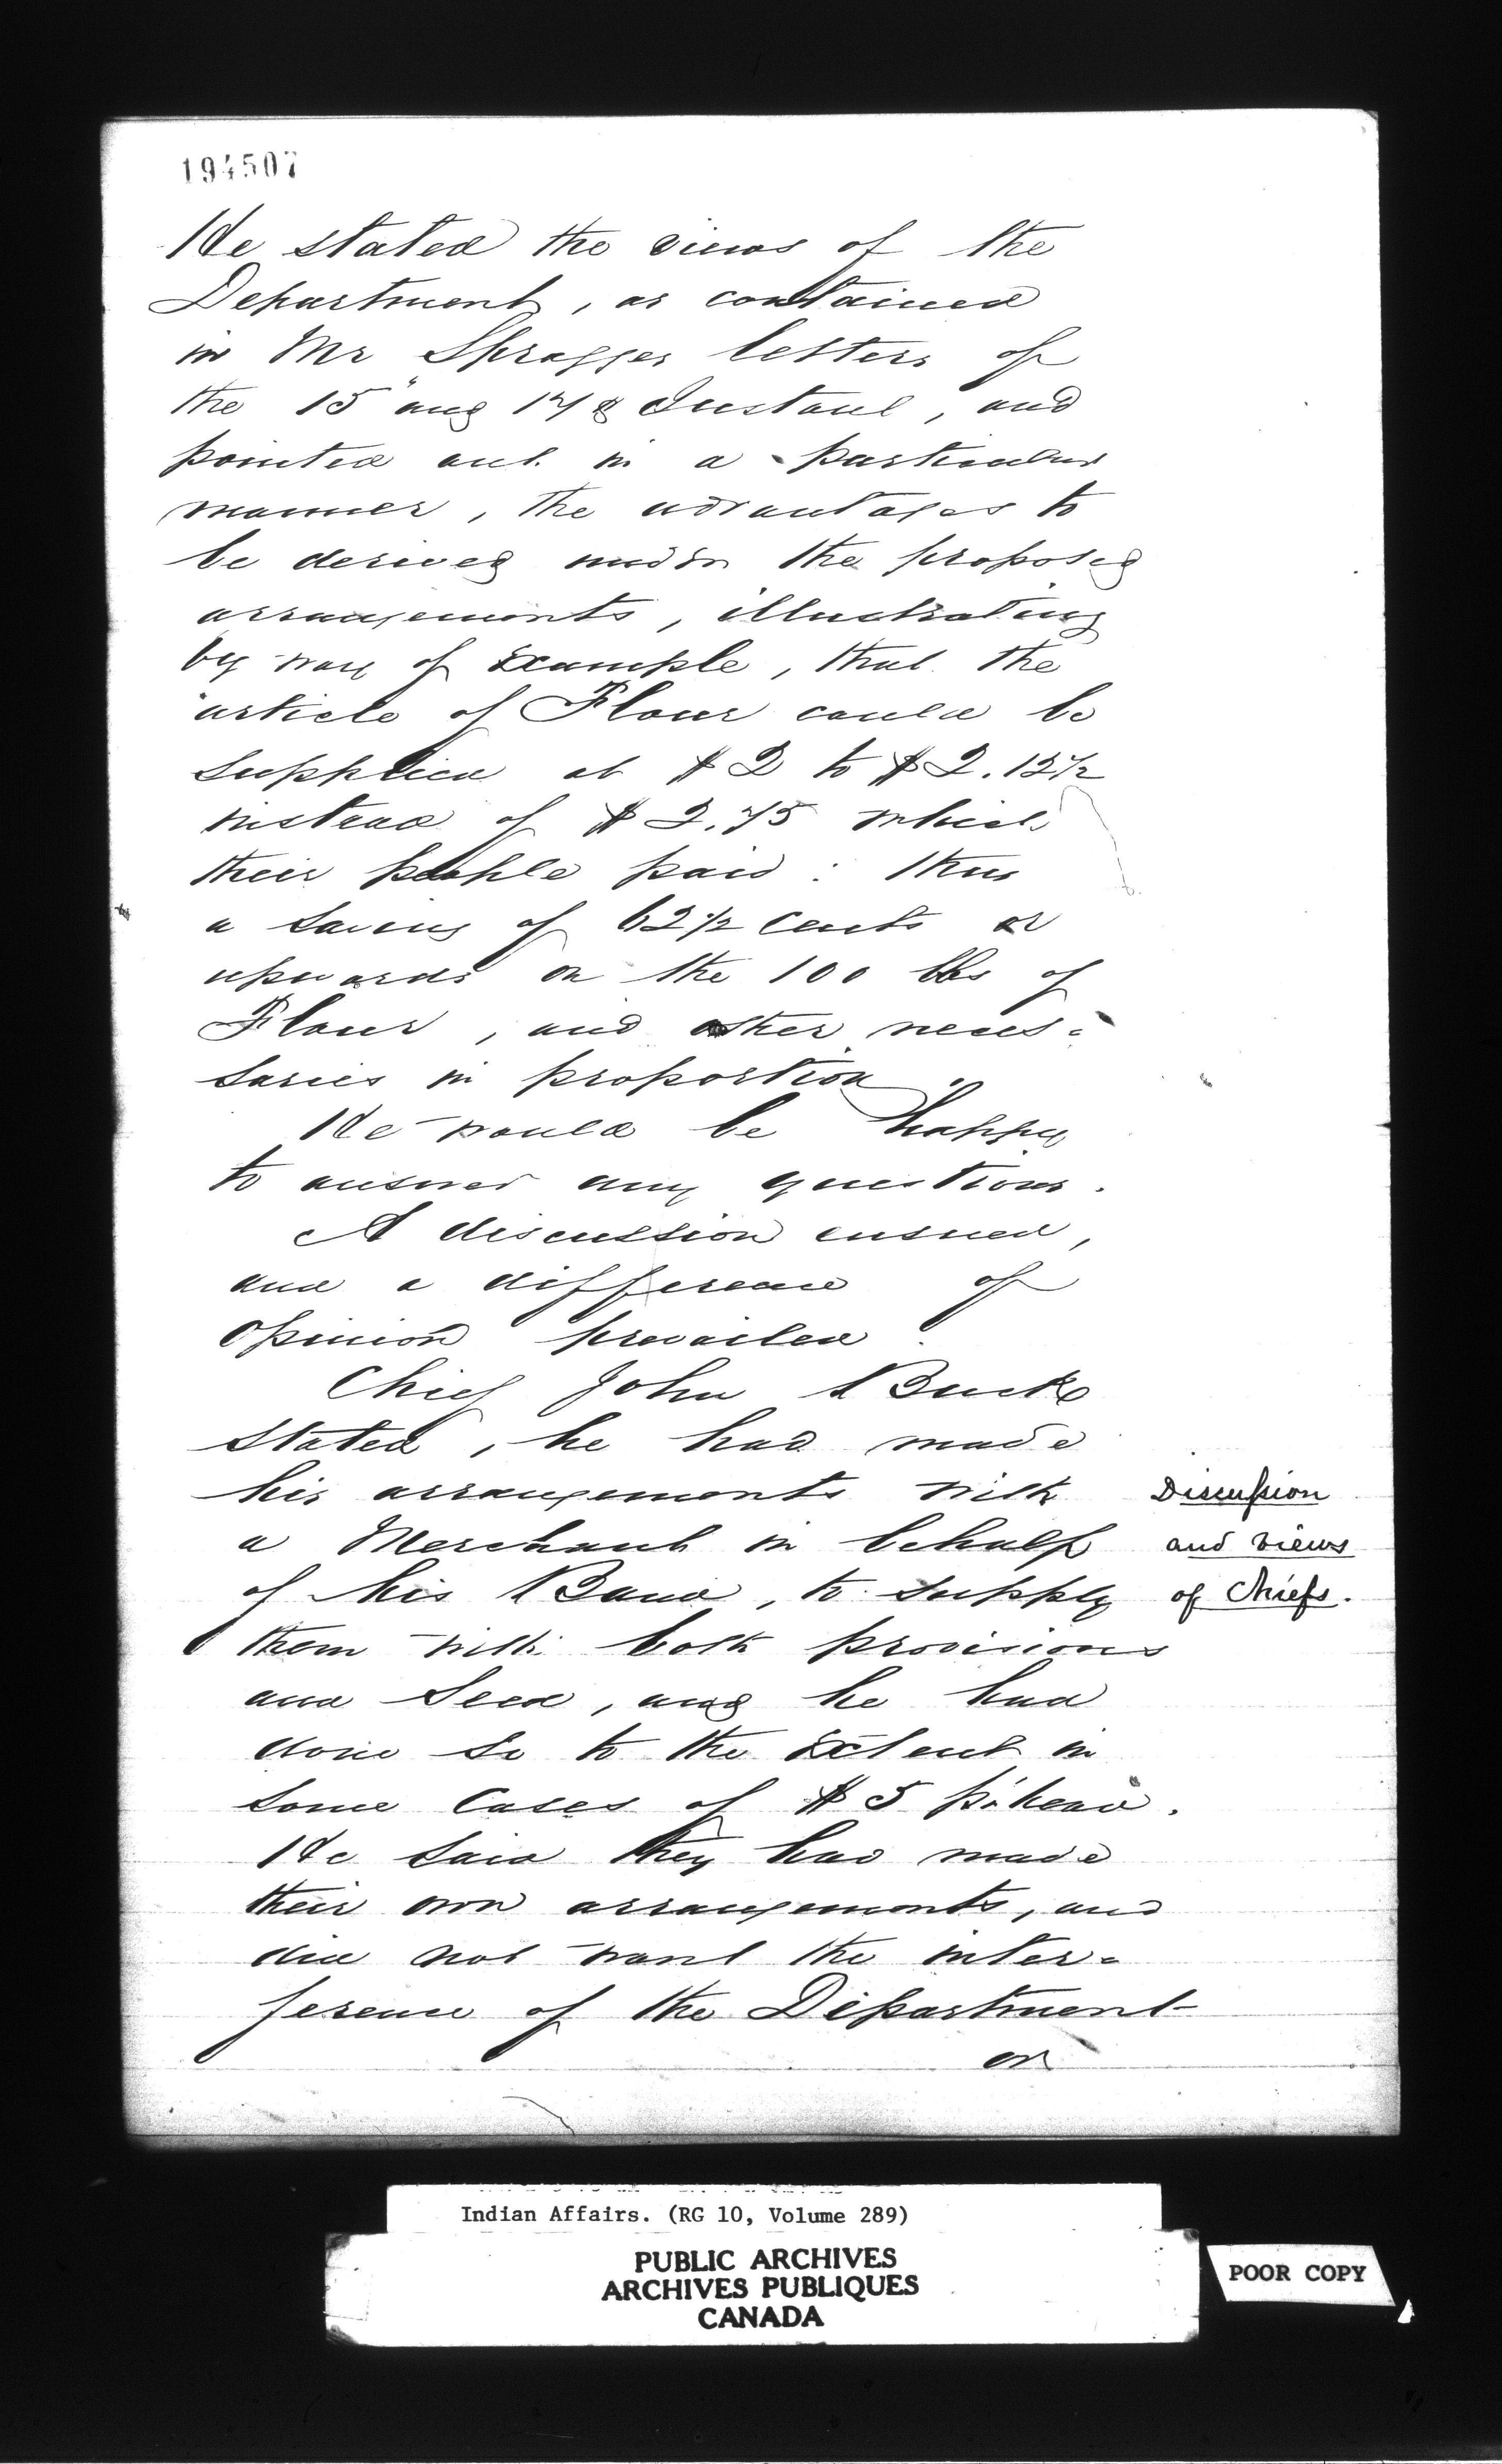 194507
He stated the views of the
Department, as contained
in Mr Spragges letters of
the 15" and 17 Instant, and
pointed out in a particular
manner, the advantages to
be derived under the proposed
arrangements, illustrating
by way of Example, that the
article of Flour could be
supplied at $2 to $2.12½
instead of $2.75 which
their people paid: thus
a saving of 62½ cents or
upwards on the 100 lbs of
Flour, and other neces=
saries in proportion.
He would be happy
to answer any questions.
A discussion ensued,
and a difference of
opinion prevailed.
Chief John Buck
stated, he had made
his arrangements with
a Merchant in behalf
of his Band, to supply
them with both provisions
and Seed, and he had
done so to the Extent in
some Cases of $5 pr head.
He said they had made
their own arrangements, and
did not want the inter=
ference of the Department
or
Discussion
and views
of Chiefs.
Indian Affairs. (RG 10, Volume 289)
PUBLIC ARCHIVES
ARCHIVES PUBLIQUES
CANADA
POOR COPY